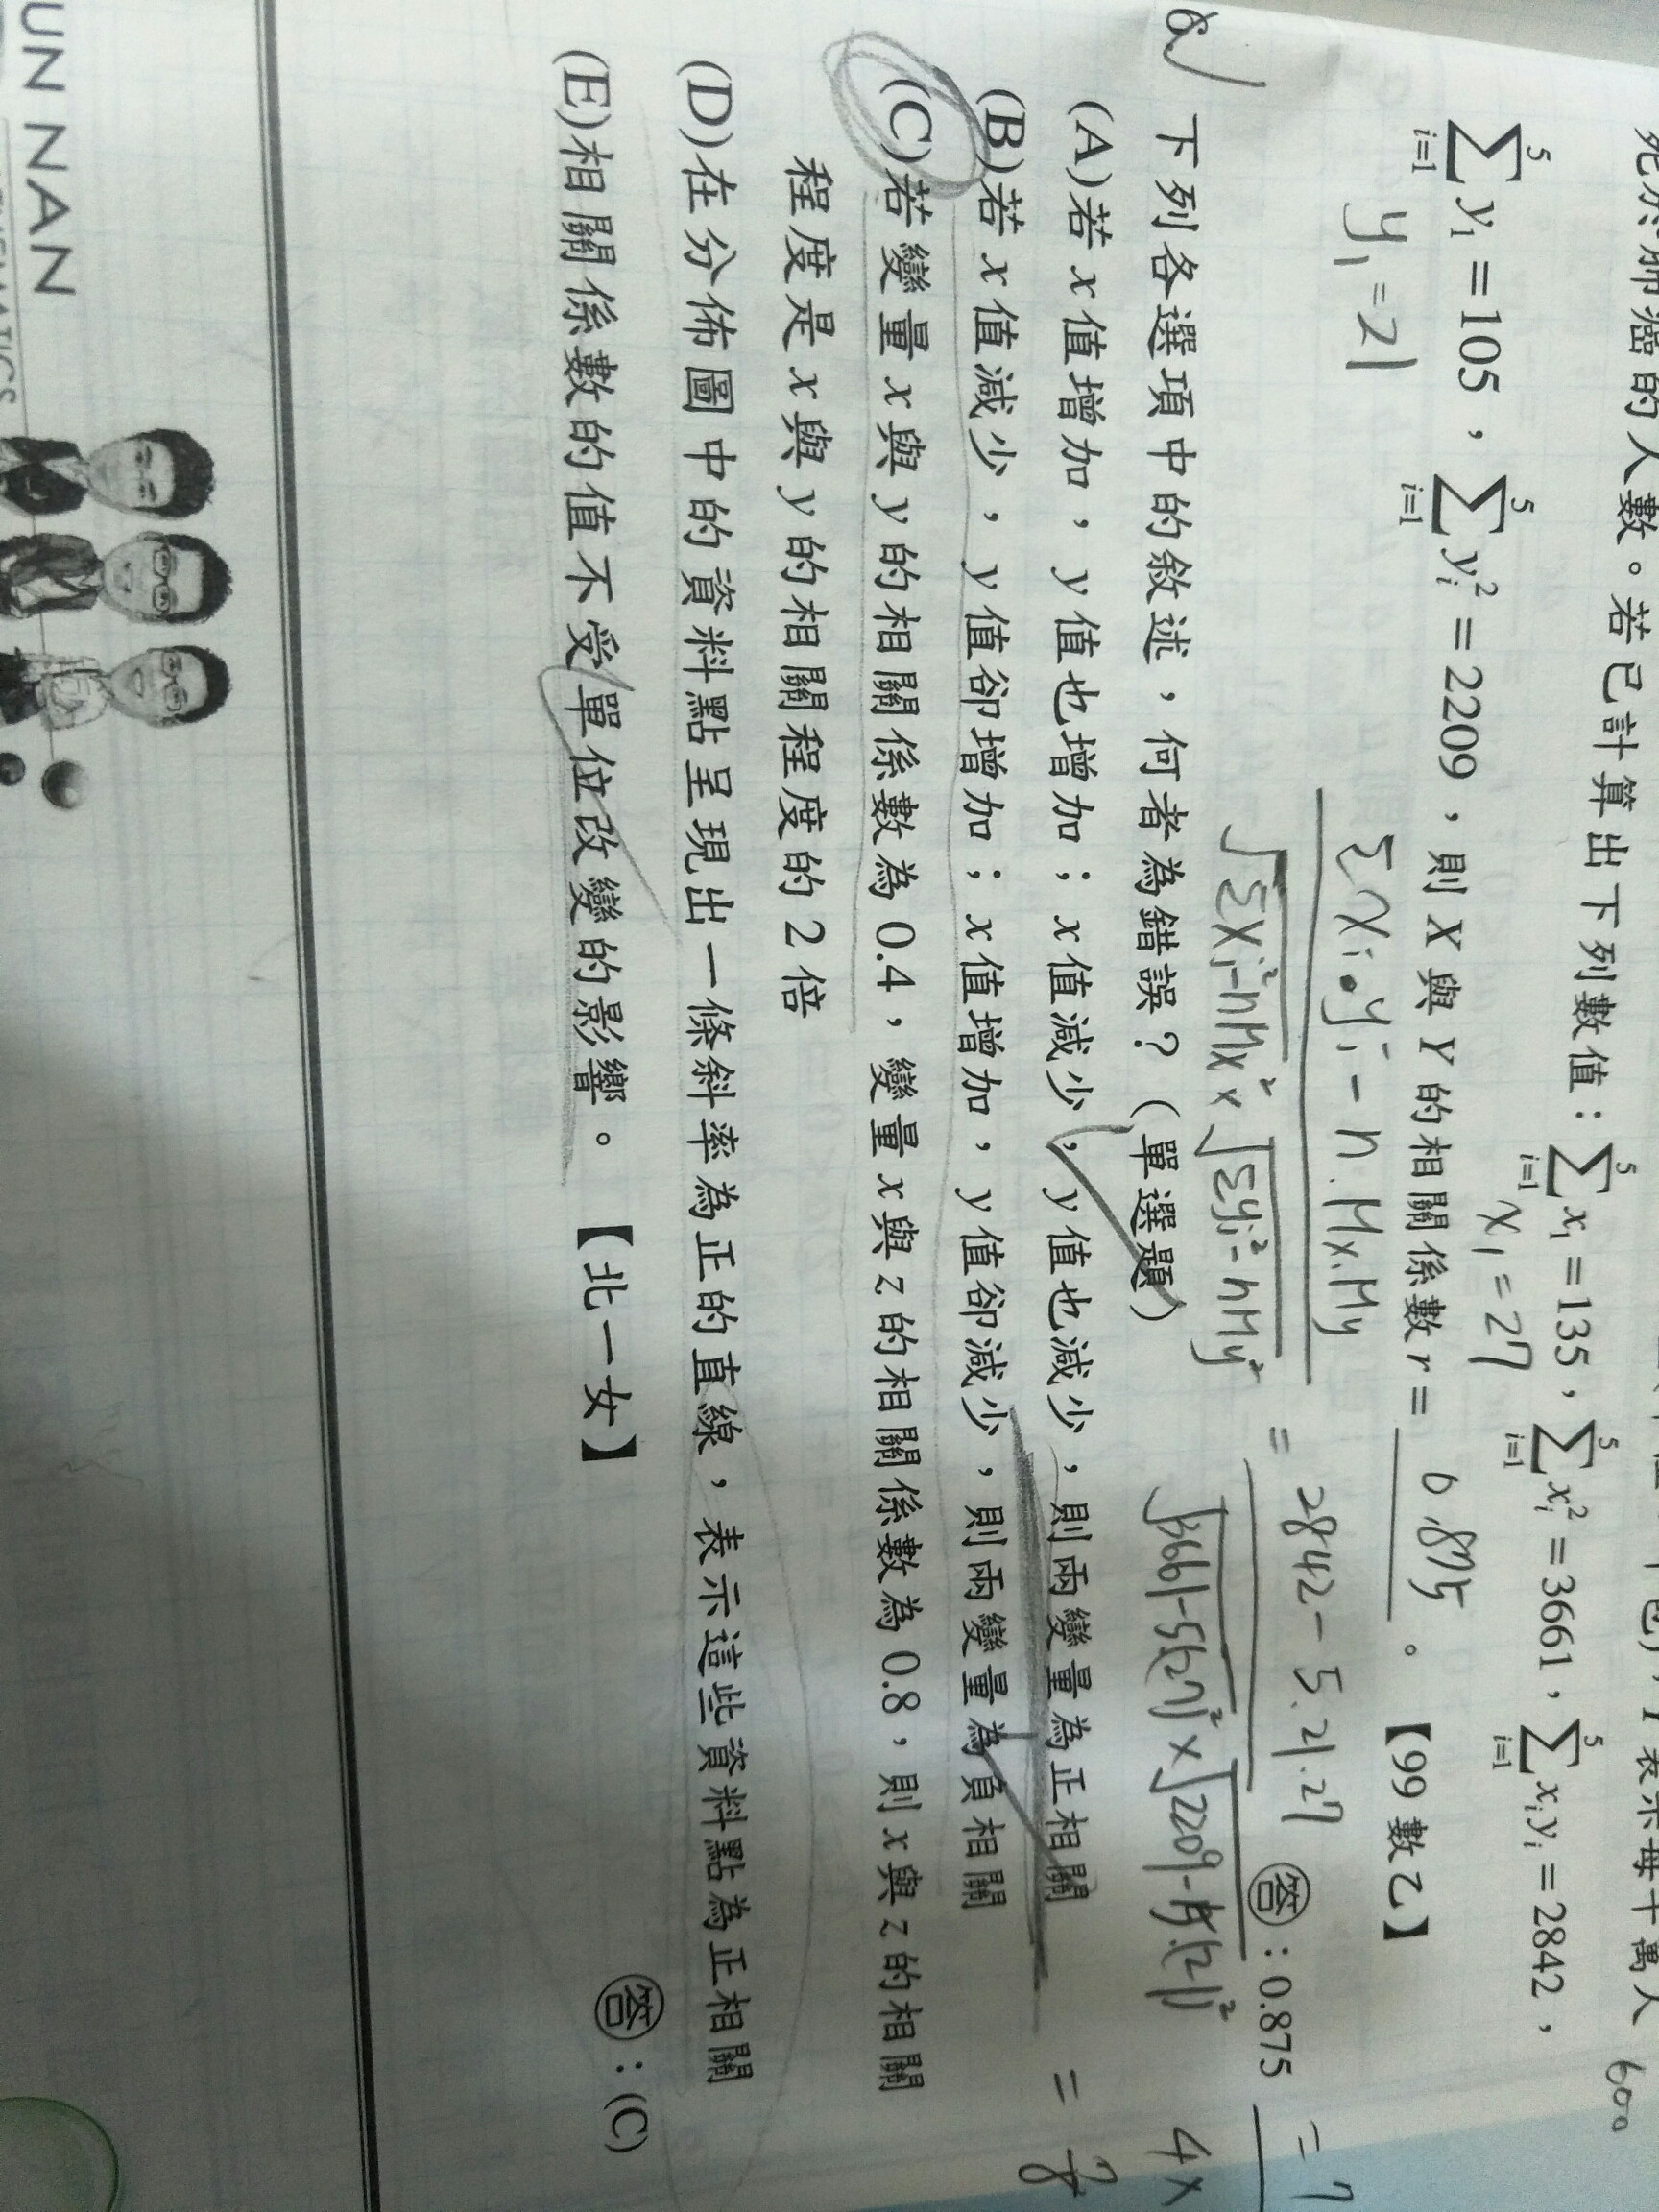 死於肺癌的人數。若已計算出下列數值：$\sum_{i=1}^{5} x_1 = 135$，$\sum_{i=1}^{5} x_i^2 = 3661$，$\sum_{i=1}^{5} x_i y_i = 2842$，
600
x₁=27
$\sum_{i=1}^{5} y_1 = 105$，$\sum_{i=1}^{5} y_i^2 = 2209$，則 X 與 Y 的相關係數 r = 0.875 。【99 數乙】
y₁=21
Σxi·yi - n·Mx·My
√Σxi²-nMx² × √Σyi²-nMy²
= 2842 - 5.21.27
√3661-5(27)² × √2209-5.(21)²
答：0.875
= 7
4×
= 7/8
下列各選項中的敘述，何者為錯誤？(單選題)
(A)若 x 值增加，y 值也增加；x 值減少，y 值也減少，則兩變量為正相關
(B)若 x 值減少，y 值卻增加；x 值增加，y 值卻減少，則兩變量為負相關
(C)若變量 x 與 y 的相關係數為 0.4，變量 x 與 z 的相關係數為 0.8，則 x 與 z 的相關
程度是 x 與 y 的相關程度的 2 倍
(D)在分佈圖中的資料點呈現出一條斜率為正的直線，表示這些資料點為正相關
(E)相關係數的值不受單位改變的影響。【北一女】
答：(C)
UN NAN